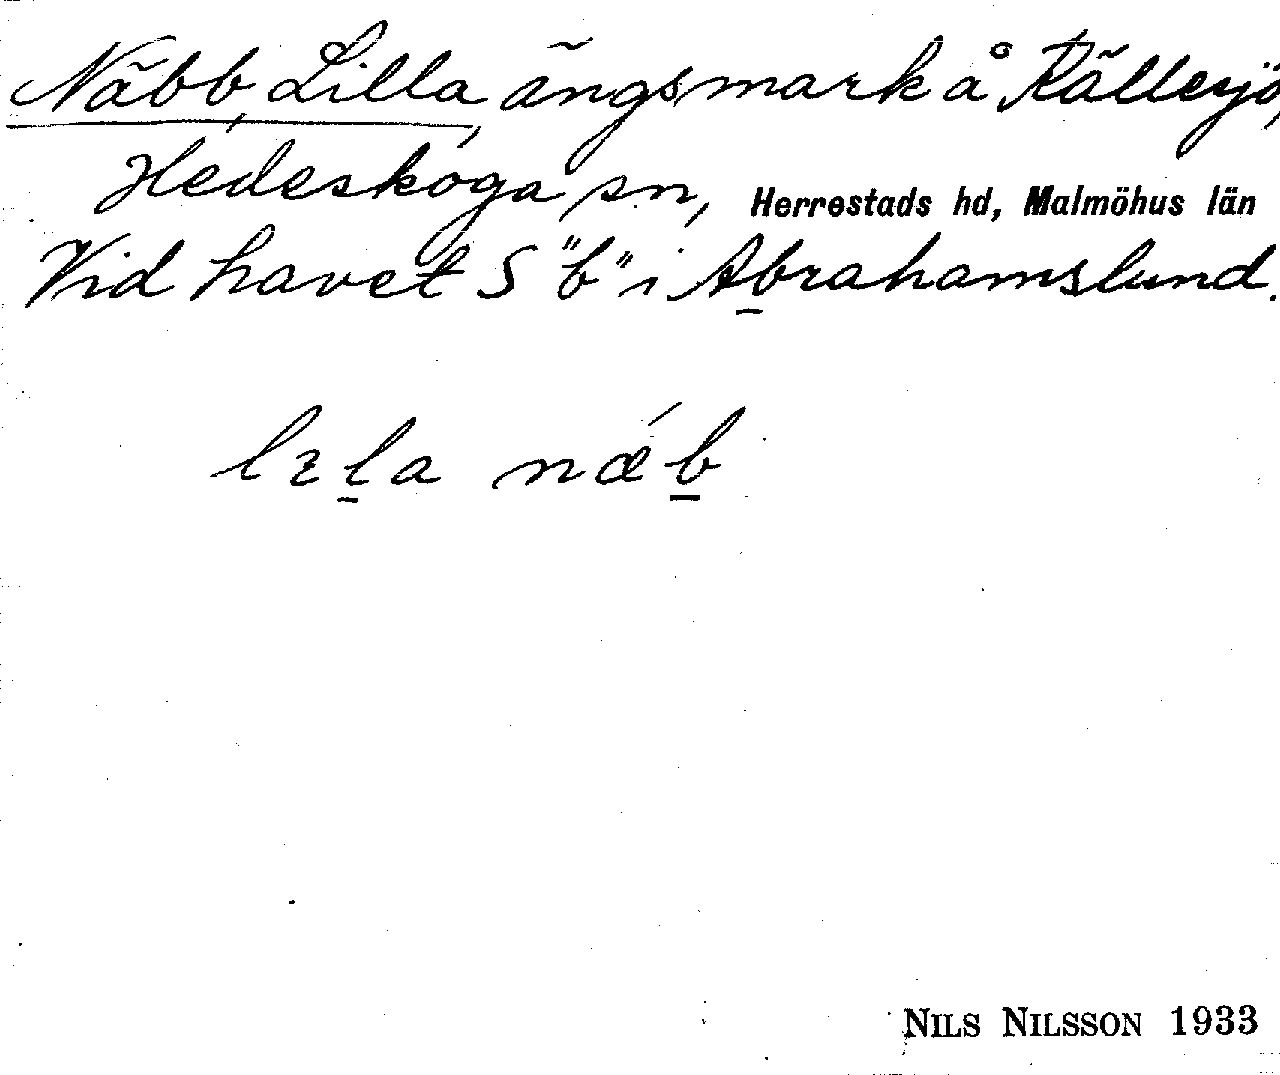 Näbb, Lilla, ängsmark å Källesjö,
Hedeskoga sn, Herrestads hd, Malmöhus län
Vid havet S "b" i Abrahamslund.
lıla næ´b
NILS NILSSON 1933